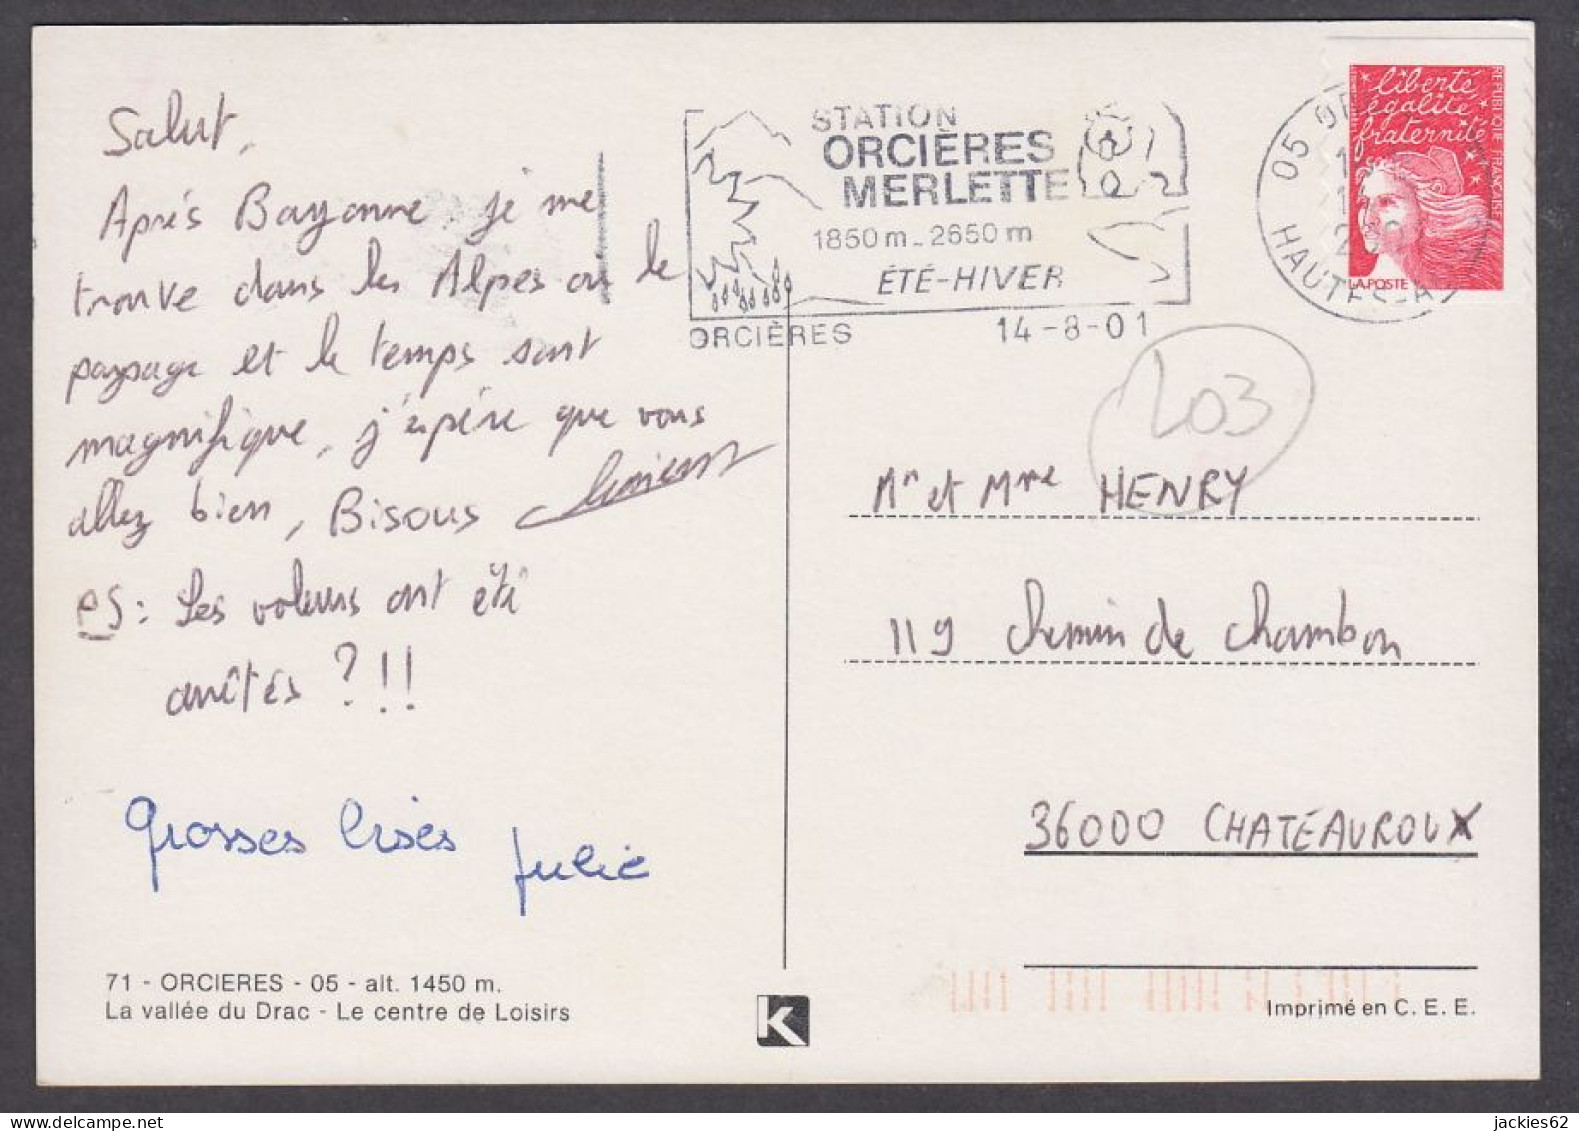 Salut,
Après Bayonne je me
trouve dans les Alpes où le
paysage et le temps sont
magnifique, j'espère que vous
allez bien, Bisous
PS: Les voleurs ont été
arrêtés ?!!
Grosses bises
Julie
71 - ORCIERES - 05 - alt. 1450 m.
La vallée du Drac - Le centre de Loisirs
K
STATION
ORCIÈRES
MERLETTE
1850 m - 2650 m
ÉTÉ-HIVER
ORCIÈRES 14-8-01
05
HAUTES-A
liberté
égalité
fraternité
REPUBLIQUE FRANÇAISE
LA POSTE
203
Mr et Mme HENRY
119 chemin de chambon
36000 CHATEAUROUX
Imprimé en C. E. E.
jackies62